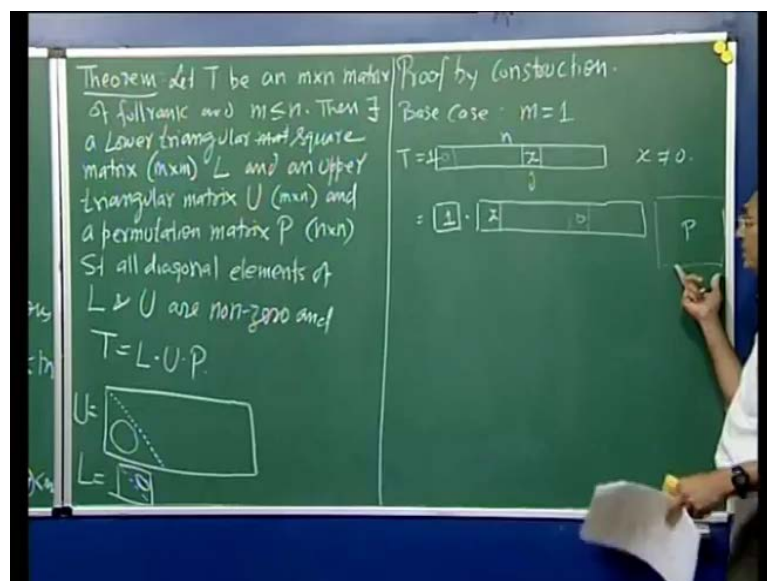 Theorem: Let T be an mxn matrix
of full rank and m≤n. Then ∃
a Lower triangular square
matrix (mxm) L and an upper
triangular matrix U (mxn) and
a permutation matrix P (nxn)
St all diagonal elements of
L & U are non-zero and
T = L·U·P.
U=
L=
Proof by Construction.
Base Case: m=1
n
T = 1 0 x x ≠ 0.
j
= 1 · x 0 P